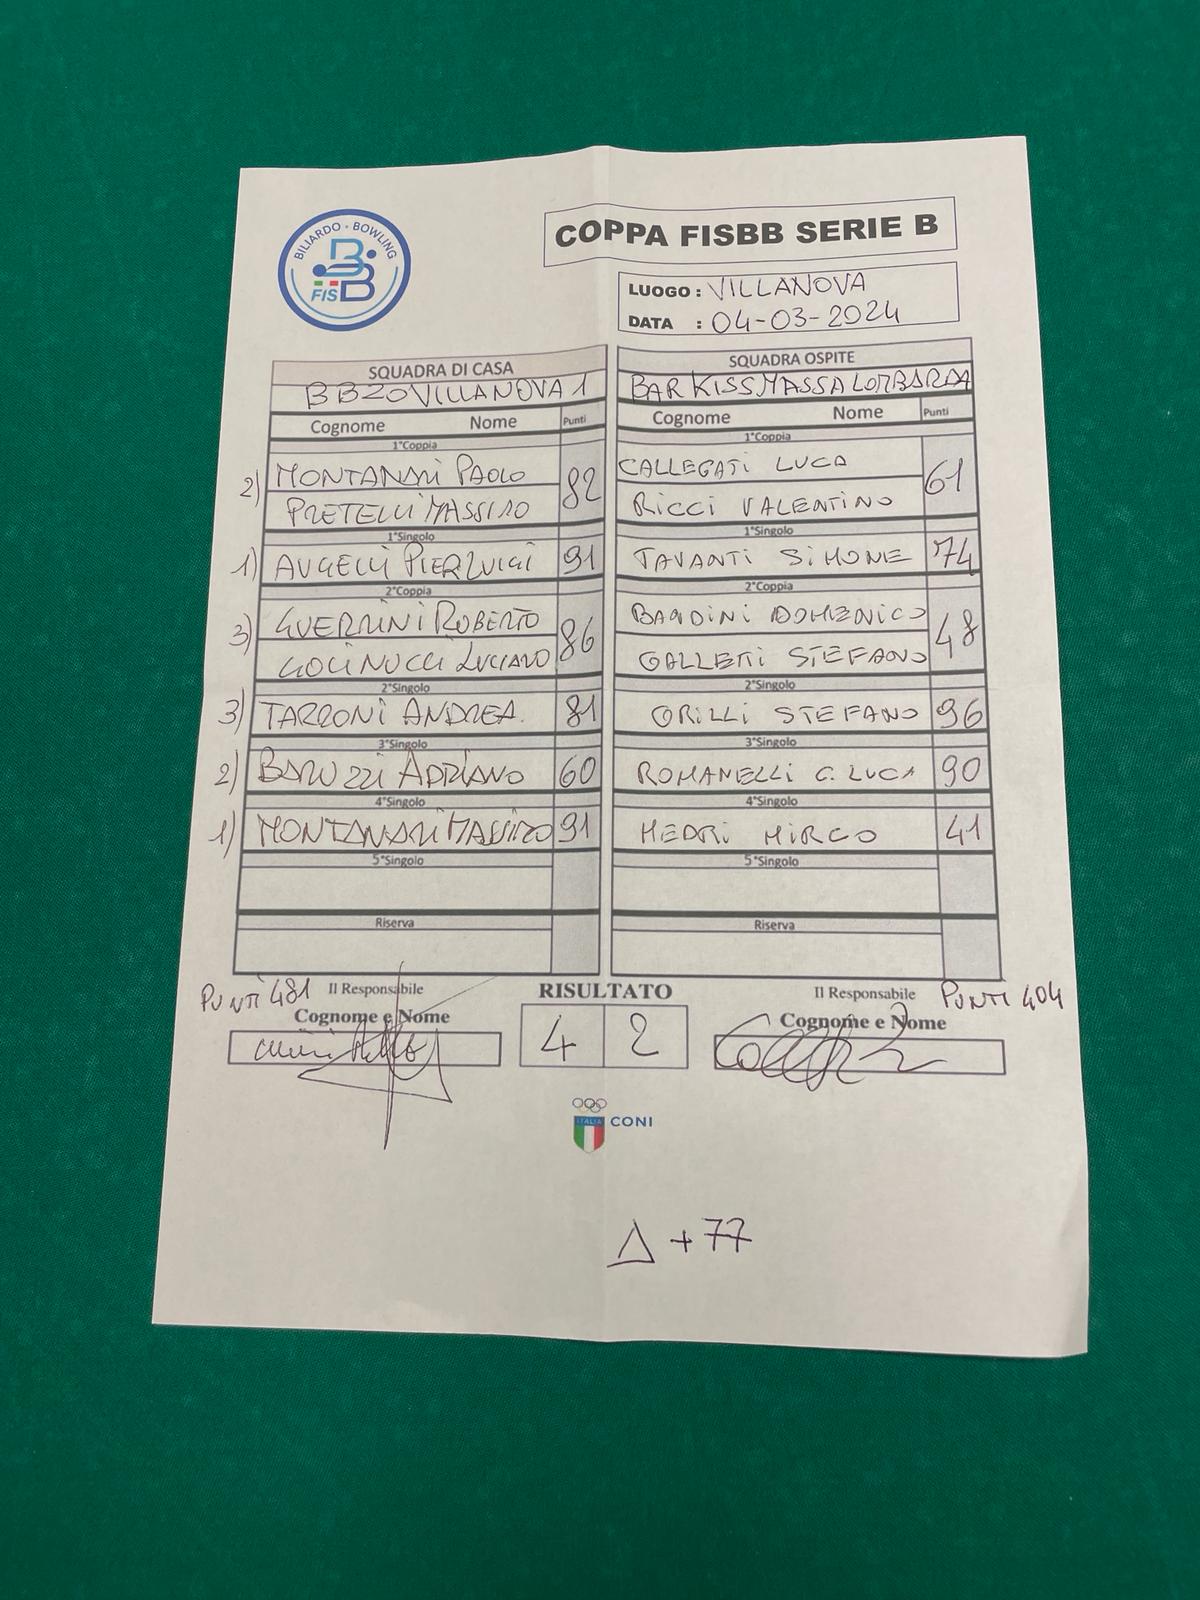 BILIARDO - BOWLING
FISBB
COPPA FISBB SERIE B
LUOGO : VILLANOVA
DATA : 04-03-2024
SQUADRA DI CASA SQUADRA OSPITE
BBZOVILLANOVA 1 BAR KISS MASSA LOMBARDA
Cognome Nome Punti Cognome Nome Punti
1°Coppia 1°Coppia
2) MONTANARI PAOLO 82 CALLEGATI LUCA 61
PRETELLI MASSIMO RICCI VALENTINO
1°Singolo 1°Singolo
1) AUGELLI PIERLUIGI 91 TAVANTI SIMONE 74
2°Coppia 2°Coppia
3) GUERRINI ROBERTO 86 BANDINI DOMENICO 48
LUCIANO GALLETTI STEFANO
2°Singolo 2°Singolo
3) TARRONI ANDREA. 81 GRILLI STEFANO 96
3°Singolo 3°Singolo
2) BARUZZI ADRIANO 60 ROMANELLI G. LUCA 90
4°Singolo 4°Singolo
1) MONTANARI MASSIMO 91 MEDRI MIRCO 41
5°Singolo 5°Singolo
Riserva Riserva
PUNTI 481 Il Responsabile RISULTATO Il Responsabile PUNTI 404
Cognome e Nome 4 2 Cognome e Nome
ITALIA CONI
Δ +77